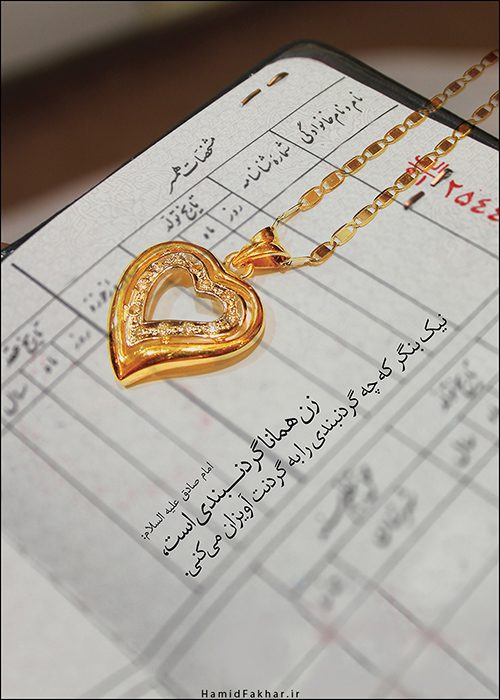 نام و نام خانوادگی
مشخصات همسر
شماره شناسنامه
تاریخ تولد
روز
ماه
۲۵۴۴
روز
ماه
سال
امام صادق علیه السلام:
زن همانا گردنبندی است،
نیک بنگر که چه گردنبندی را به گردنت آویزان می‌کنی.
HamidFakhar.ir